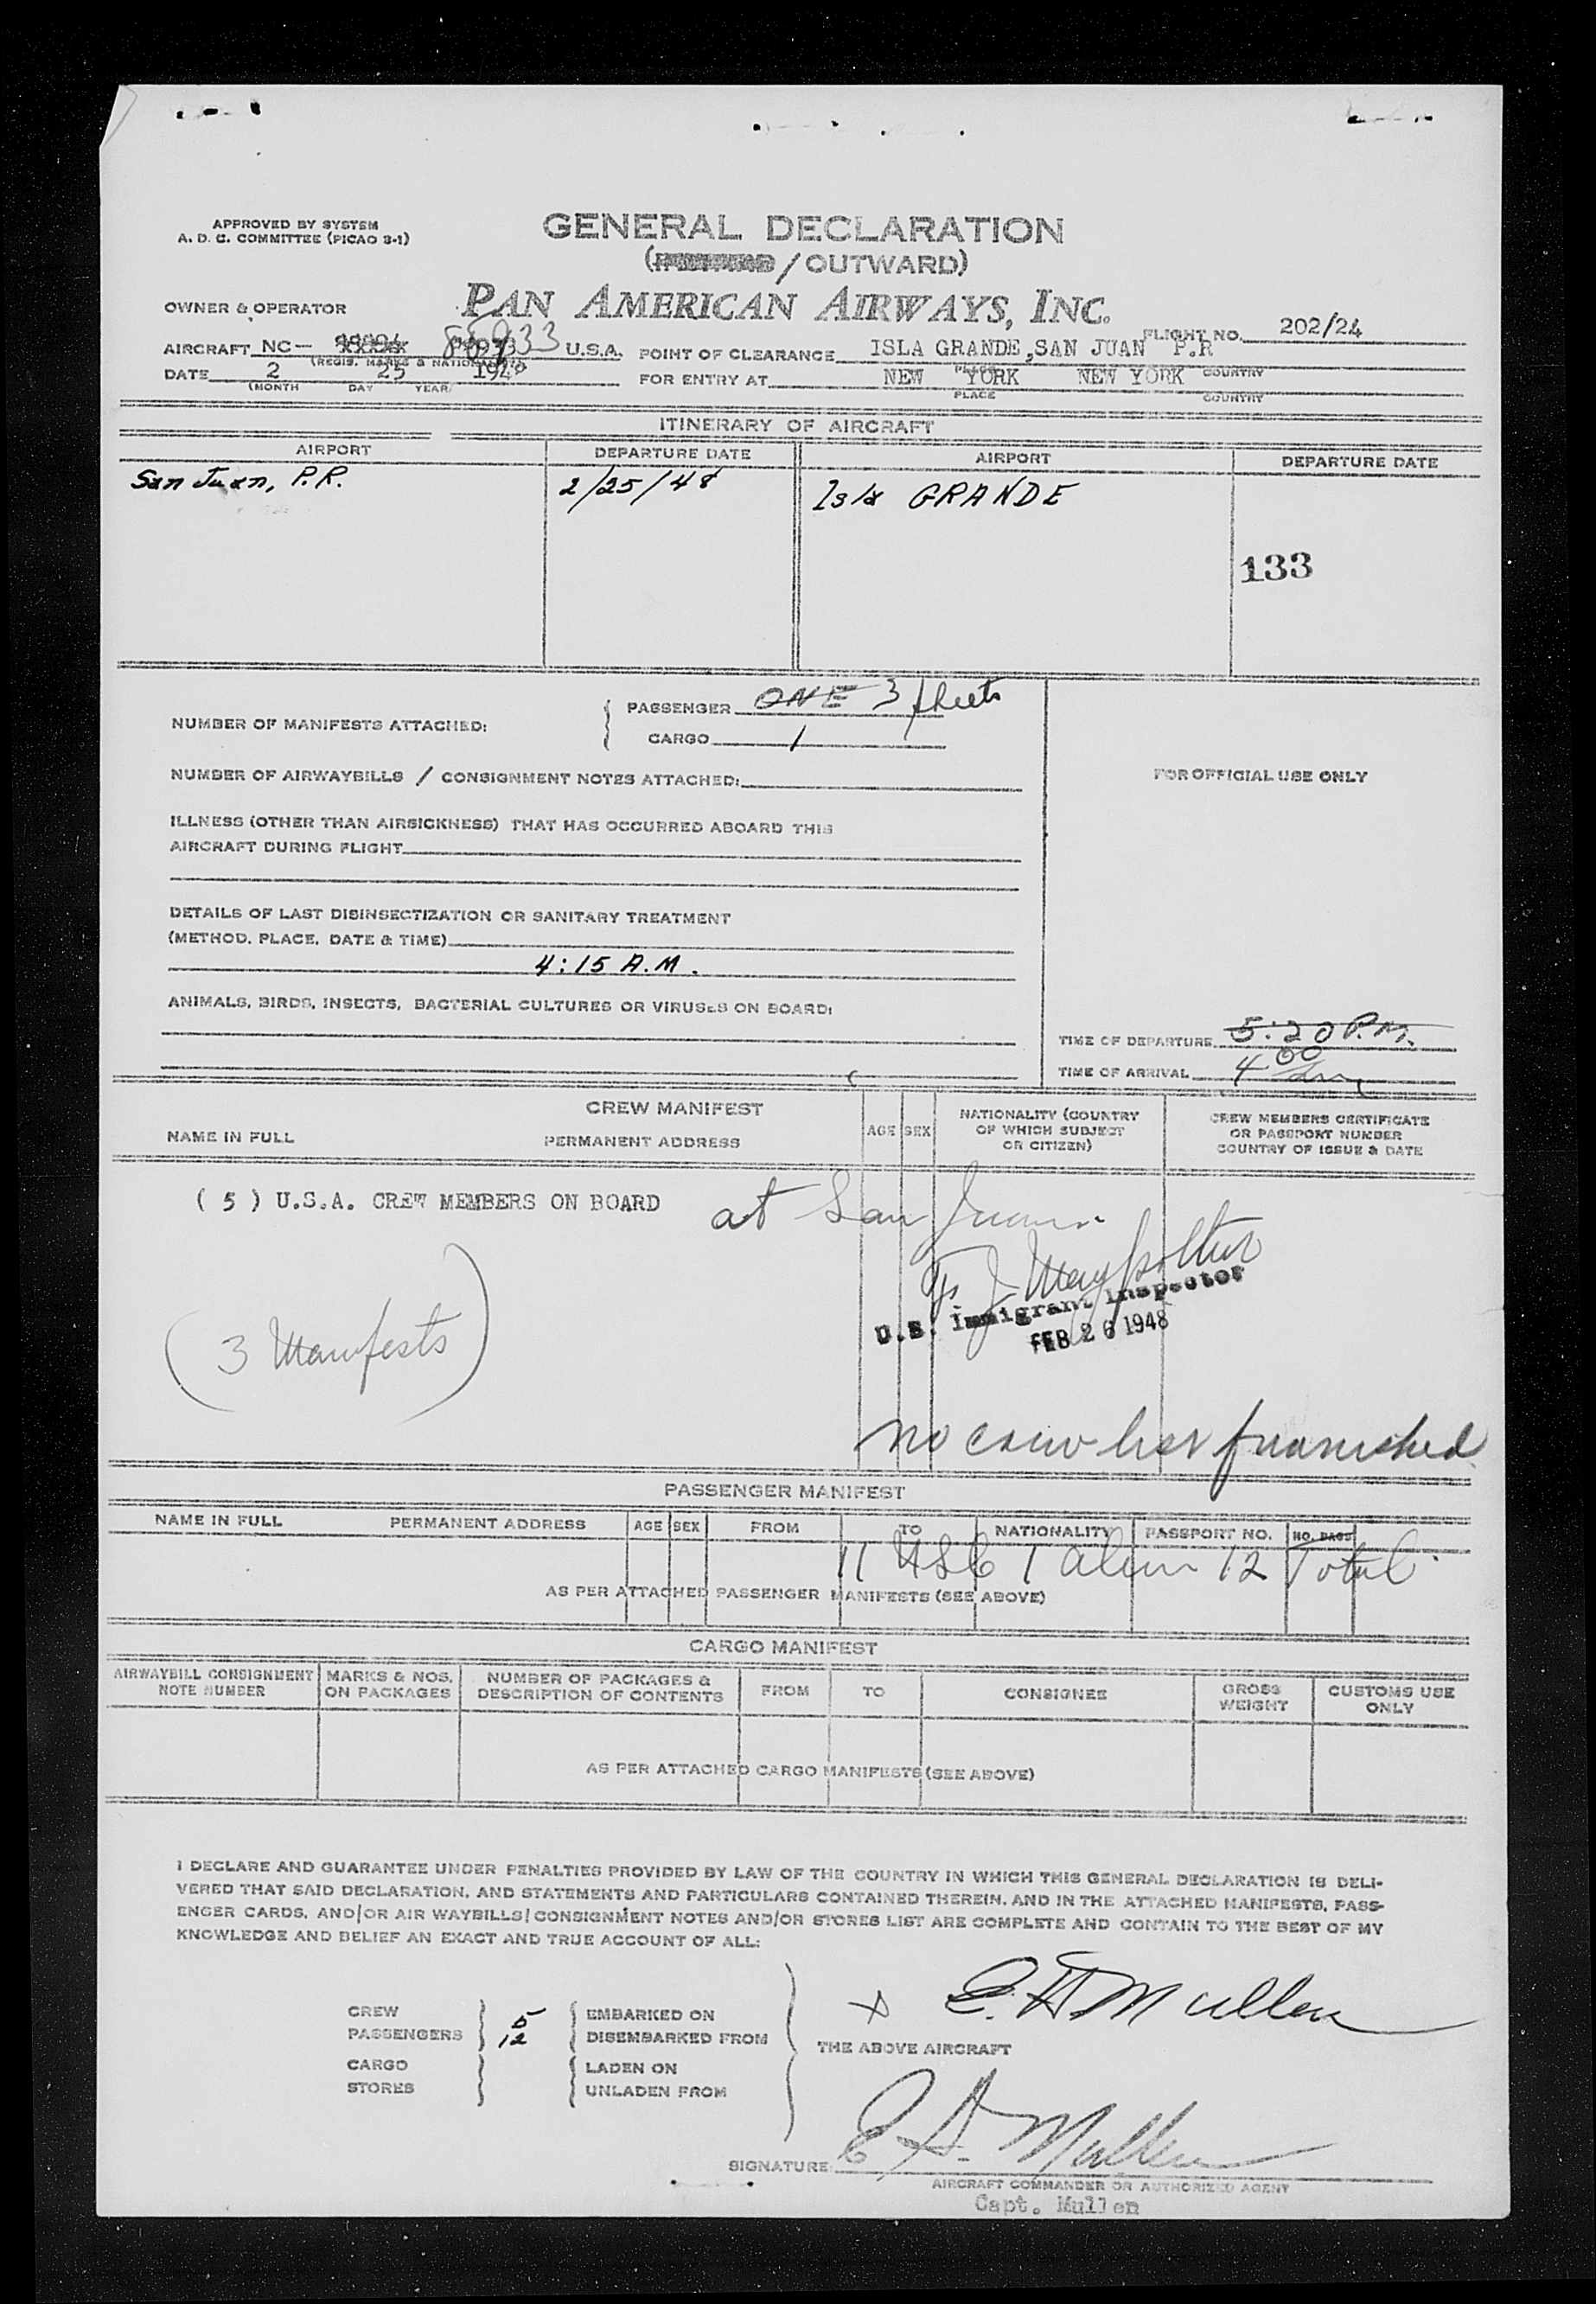 APPROVED BY SYSTEM
A. D. C. COMMITTEE (PICAO 3-1)
GENERAL DECLARATION
(INWARD / OUTWARD)
OWNER & OPERATOR
PAN AMERICAN AIRWAYS, INC.
FLIGHT NO. 202/24
AIRCRAFT NC- 88933 U.S.A. POINT OF CLEARANCE ISLA GRANDE, SAN JUAN P.R
(REGIS. MARKS & NATIONALITY) PLACE COUNTRY
DATE 2 25 1948 FOR ENTRY AT NEW YORK NEW YORK
(MONTH DAY YEAR PLACE COUNTRY
ITINERARY OF AIRCRAFT
AIRPORT DEPARTURE DATE AIRPORT DEPARTURE DATE
San Juan, P.R. 2/25/48 Isla GRANDE
133
NUMBER OF MANIFESTS ATTACHED: PASSENGER ONE 3 sheets
CARGO 1
NUMBER OF AIRWAYBILLS / CONSIGNMENT NOTES ATTACHED:
FOR OFFICIAL USE ONLY
ILLNESS (OTHER THAN AIRSICKNESS) THAT HAS OCCURRED ABOARD THIS
AIRCRAFT DURING FLIGHT
DETAILS OF LAST DISINSECTIZATION OR SANITARY TREATMENT
(METHOD, PLACE, DATE & TIME)
4:15 A.M.
ANIMALS, BIRDS, INSECTS, BACTERIAL CULTURES OR VIRUSES ON BOARD:
TIME OF DEPARTURE 5:20 P.M.
TIME OF ARRIVAL 4 00 am
CREW MANIFEST
NAME IN FULL PERMANENT ADDRESS AGE SEX NATIONALITY (COUNTRY OF WHICH SUBJECT OR CITIZEN) CREW MEMBERS CERTIFICATE OR PASSPORT NUMBER COUNTRY OF ISSUE & DATE
( 5 ) U.S.A. CREW MEMBERS ON BOARD at San Juan.
U.S. Immigrant Inspector
FEB 26 1948
(3 Manifests)
no crew list furnished
PASSENGER MANIFEST
NAME IN FULL PERMANENT ADDRESS AGE SEX FROM TO NATIONALITY PASSPORT NO. NO. BAGS
11 USC 1 alien 12 Total
AS PER ATTACHED PASSENGER MANIFESTS (SEE ABOVE)
CARGO MANIFEST
AIRWAYBILL CONSIGNMENT NOTE NUMBER MARKS & NOS. ON PACKAGES NUMBER OF PACKAGES & DESCRIPTION OF CONTENTS FROM TO CONSIGNEE GROSS WEIGHT CUSTOMS USE ONLY
AS PER ATTACHED CARGO MANIFESTS (SEE ABOVE)
I DECLARE AND GUARANTEE UNDER PENALTIES PROVIDED BY LAW OF THE COUNTRY IN WHICH THIS GENERAL DECLARATION IS DELI-
VERED THAT SAID DECLARATION, AND STATEMENTS AND PARTICULARS CONTAINED THEREIN, AND IN THE ATTACHED MANIFESTS, PASS-
ENGER CARDS, AND/OR AIR WAYBILLS/CONSIGNMENT NOTES AND/OR STORES LIST ARE COMPLETE AND CONTAIN TO THE BEST OF MY
KNOWLEDGE AND BELIEF AN EXACT AND TRUE ACCOUNT OF ALL:
X E. A Mullen
CREW 5 EMBARKED ON
PASSENGERS 12 DISEMBARKED FROM
THE ABOVE AIRCRAFT
CARGO LADEN ON
STORES UNLADEN FROM
SIGNATURE: E A. Mullen
AIRCRAFT COMMANDER OR AUTHORIZED AGENT
Capt. Mullen